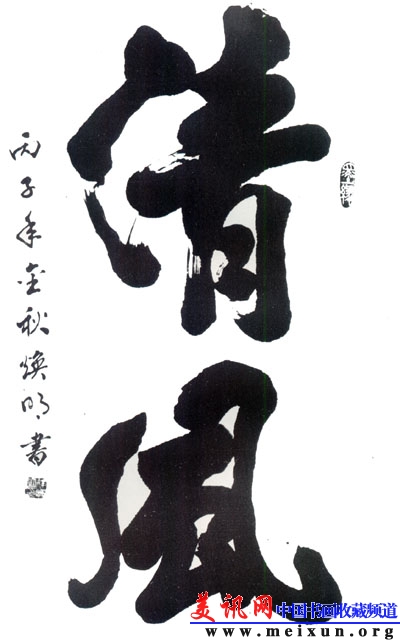 清风
丙子年金秋焕明书
美讯网 中国书画收藏频道
www.meixun.org